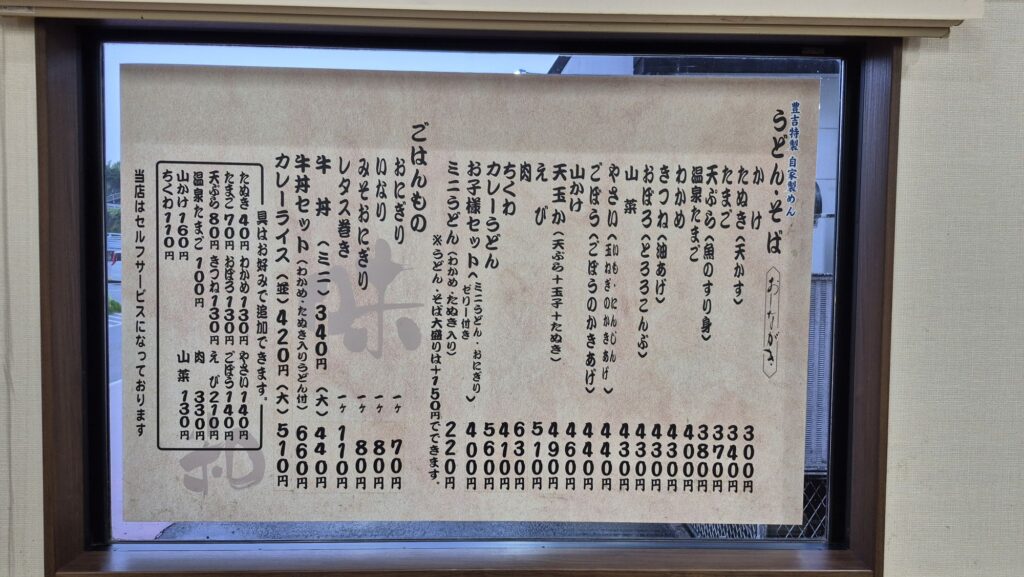 豊吉特製 自家製めん
うどん・そば おしながき
かけ 300円
たぬき(天かす) 340円
たまご 370円
天ぷら(魚のすり身) 380円
温泉たまご 400円
わかめ 430円
きつね(油あげ) 430円
おぼろ(とろろこんぶ) 430円
山菜 430円
やさい(いも・にんじん 玉ねぎ・のかきあげ) 440円
ごぼう(ごぼうのかきあげ) 440円
山かけ 460円
天玉か(天ぷら+玉子+たぬき) 490円
えび 510円
肉 630円
ちくわ 410円
カレーうどん 560円
お子様セット(ミニうどん・おにぎり ゼリー付き) 400円
ミニうどん(わかめ・たぬき入り) 220円
※うどん、そば大盛りは+150円でできます。
ごはんもの
おにぎり 一ヶ 70円
いなり 一ヶ 80円
みそおにぎり 一ヶ 80円
レタス巻き 一ヶ 110円
牛丼 (ミニ) 340円 (大) 440円
牛丼セット(わかめ・たぬき入りうどん付) 660円
カレーライス (並) 420円 (大) 510円
具はお好みで追加できます。
たぬき 40円 わかめ 130円 やさい 140円
たまご 70円 おぼろ 130円 ごぼう 140円
天ぷら 80円 きつね 130円 えび 210円
温泉たまご 100円 肉 330円
山かけ 160円 山菜 130円
ちくわ 110円
当店はセルフサービスになっております
味
礼